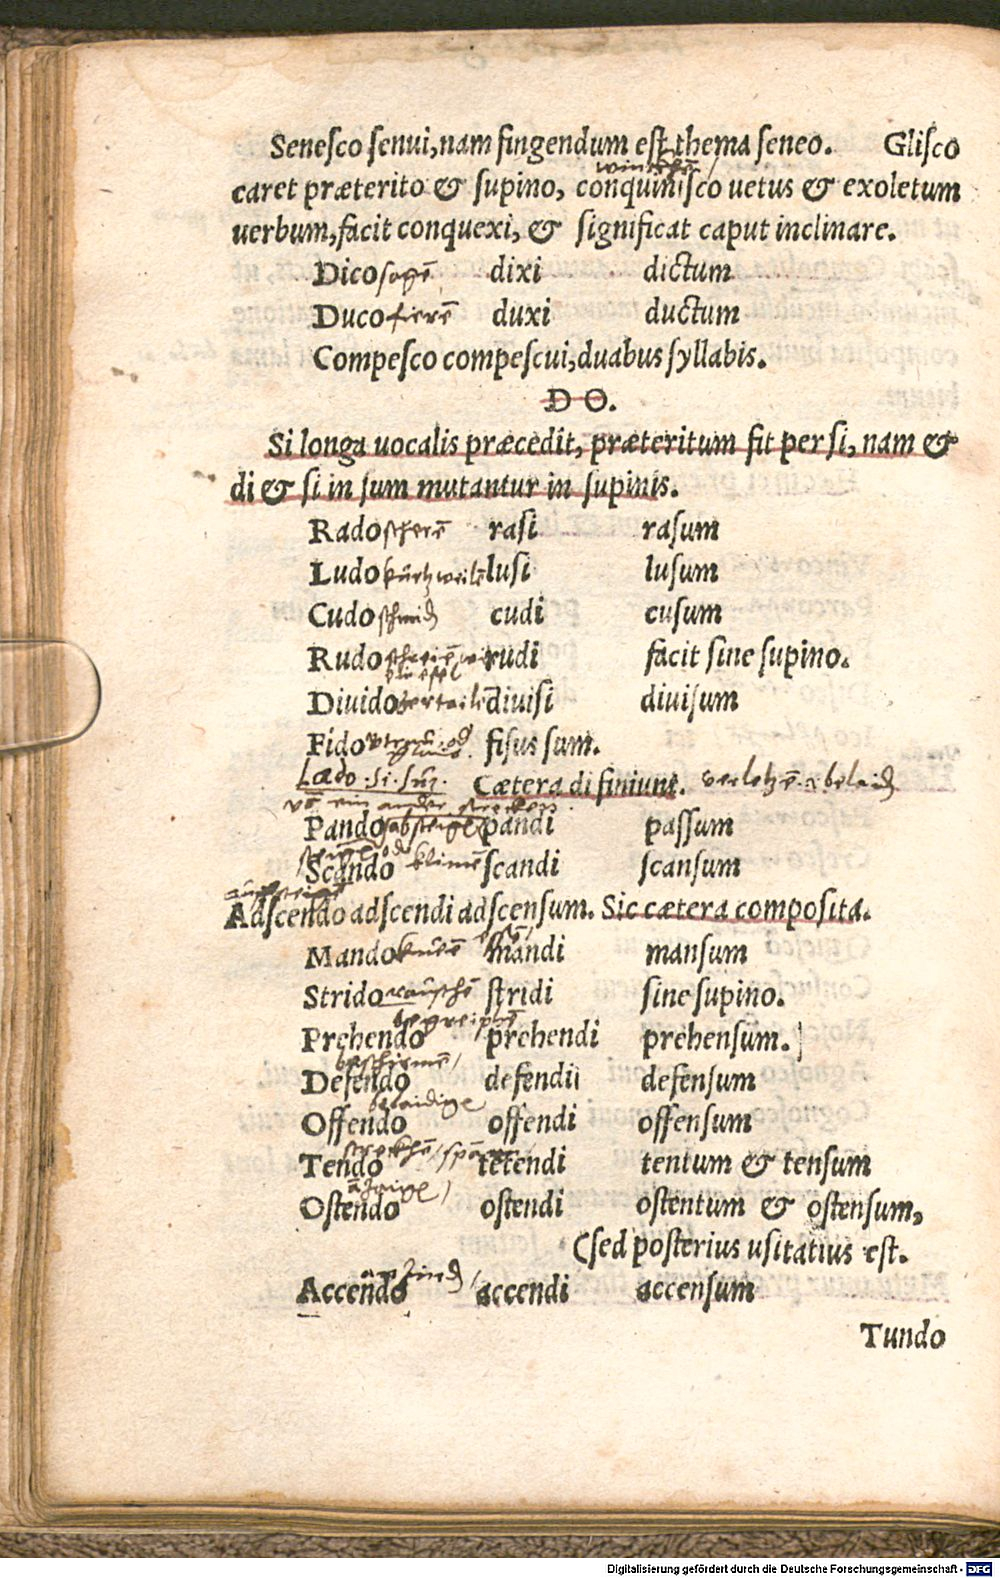 Seneſco ſenui, nam fingendum eſt thema ſeneo. Gliſco
caret præterito & ſupino, conquiniſco uetus & exoletum
uerbum, facit conquexi, & ſignificat caput inclinare.
Dico ſagē dixi dictum
Duco fierē duxi ductum
Compeſco compeſcui, duabus ſyllabis.
D O.
Si longa uocalis præcedit, præteritum fit per ſi, nam &
di & ſi in ſum mutantur in ſupinis.
Rado ſcherē raſi raſum
Ludo luſi luſum
Cudo cudi cuſum
Rudo rudi facit ſine ſupino.
Diuido diuiſi diuiſum
Fido fiſus ſum.
Lædo . ſi . ſū. Cætera di finiunt. verletzē
vō ein ander ſtrecken.
Pando pandi paſſum
Scando klimē ſcandi ſcanſum
Adſcendo adſcendi adſcenſum. Sic cætera compoſita.
Mando mandi manſum
Strido rauſchē ſtridi ſine ſupino.
begreiphē
Prehendo prehendi prehenſum.
beſchirmē
Defendo defendi defenſum
belaidigē
Offendo offendi offenſum
Tendo tetendi tentum & tenſum
Oſtendo oſtendi oſtentum & oſtenſum,
(ſed poſterius uſitatius eſt.
Accendo accendi accenſum
Tundo
Digitalisierung gefördert durch die Deutsche Forschungsgemeinschaft - DFG